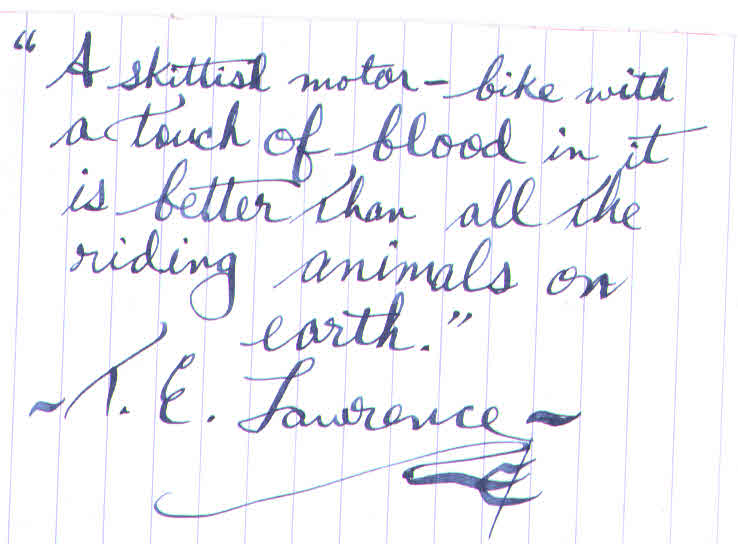 “A skittish motor-bike with
a touch of blood in it
is better than all the
riding animals on
earth.”
~T. E. Lawrence~